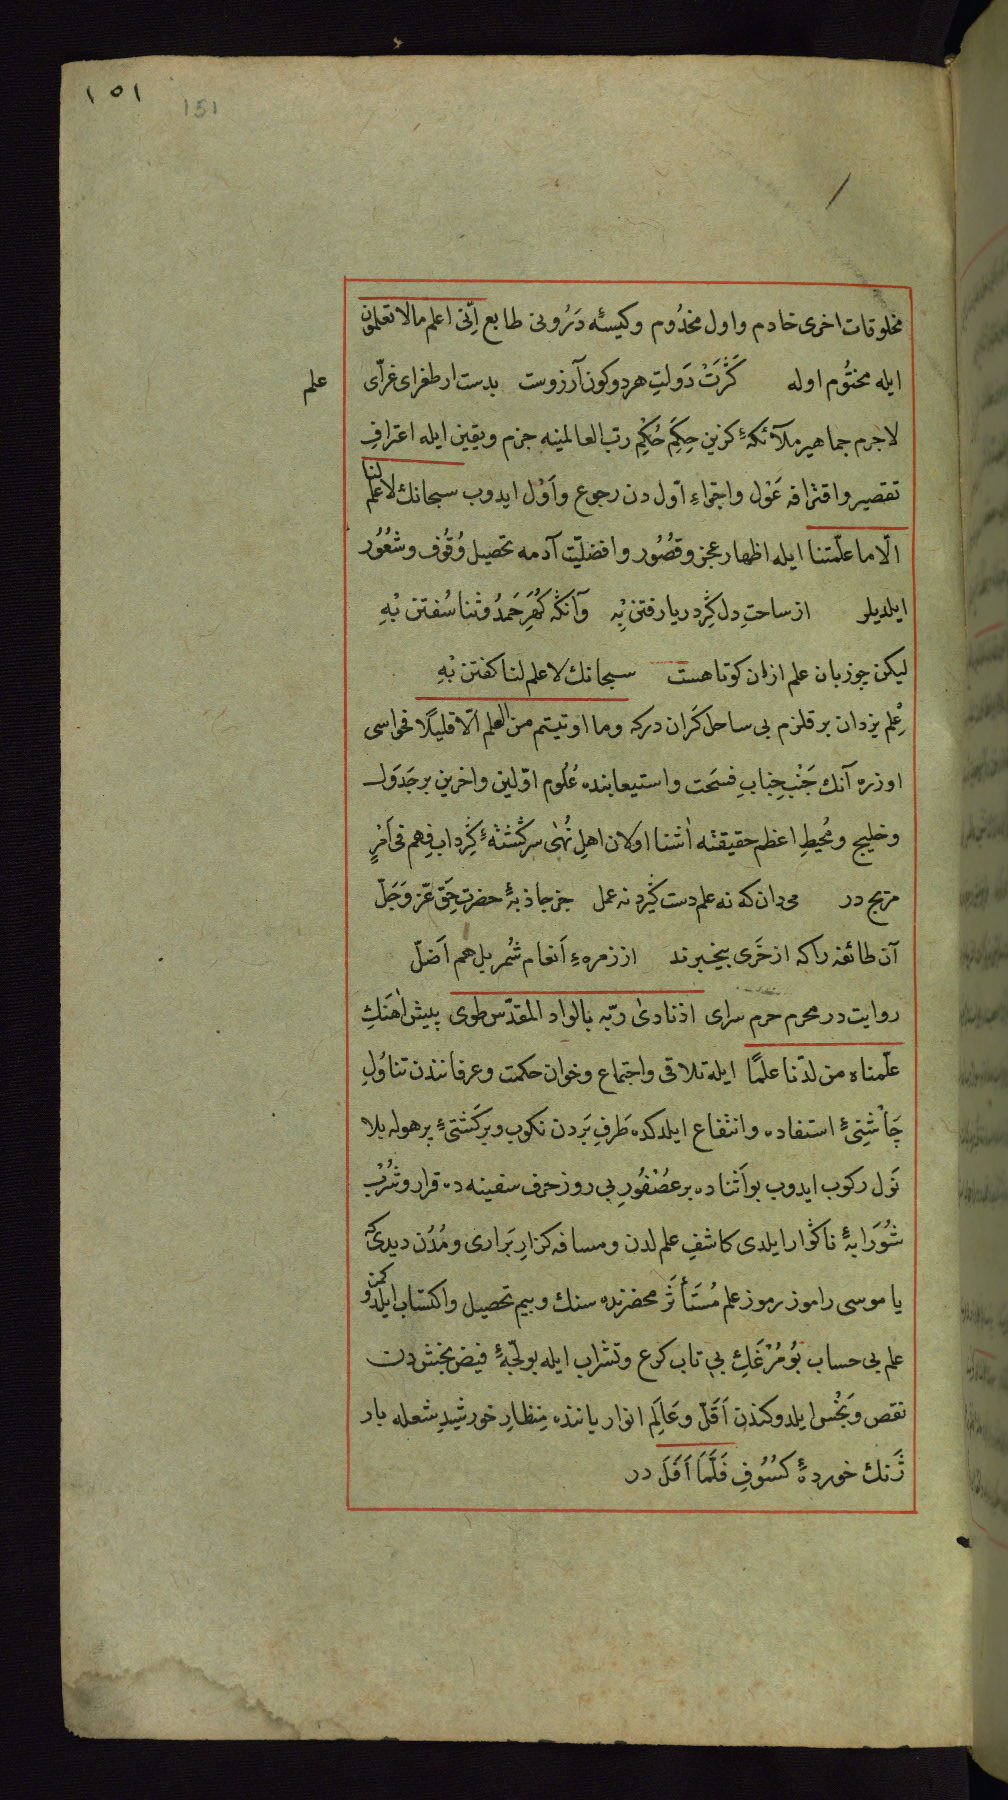 ١٥١
151
مخلوقات اخرى خادم واول مخدُوم وكيسهٔ دَرُونى طابع اِنّى اعلم مالا تعلمون
ايله مختُوم اوله كَرْتْ دَولتِ هردو كون آرزوست بدست ار طغراى غرّاى علم
لاجرم جماهير ملآئكهٔ كزين حِكَمِ حُكْمِ رب العالمينه جزم ويقين ايله اعترافِ
تقصير واقترافه عَوْل واجتراءِ اوّل دن رجوع واَوْل ايدوب سبحانك لاعلم لنا
الّا ما علّمتنا ايله اظهار عجز وقصُور وافضليّت آدمه تحصيل وُقُوف وشعُور
ايلديلر از ساحتِ دل كَرد ريا رفتن بِه وآنكه كُهَرِ حَمدُ وثنا سُفتن بْهِ
ليكن چو زبان علم ازان كوتاهست سبحانك لاعلم لنا كفتن بْهِ
عِلم يزدان بر قلزم بى ساحل كَران دركه وما اوتيتم من العلم الّا قليلًا فحواسى
اوزره آنك جَنْبِ جِنابِ فسحَت واستيعابنده عُلُوم اوّلين واخرين بر جَدوَل
وخليج ومُحيطِ اعظم حقيقته اشنا اولان اهلِ نُهٰى سركشتهٔ كِرداب فِهم فى اَمْرٍ
مريج در مى دان كه نه علم دست كيرد نه عمل جز جاذبهٔ حضرتِ حَقّ عَزّ وَجَلّ
آن طائفه را كه از خَرى بيخبرند از زمرهءِ اَنعام شُمر بل هم اَضَلّ
روايت در محرم حرم سراى اذ نادىٰ ربّه بالواد المقدّس طوى پيش اٰهَنكِ
علّمناه من لدنّا علمًا ايله تلاقى واجتماع وخوان حكمت وعرفانندن تناوُلِ
چَاشْنِىٔ استفاده وانتفاع ايلدكده طَرفِ بَردن نكوب وبر كَشتىٔ پر هوله بلا
نَول ركوب ايدوب بو اَثناده بر عصْفُورِ بى زور حرف سفينه ده قرار وشُرْبِ
شُورَابهٔ ناكوار ايلدى كاشفِ علم لدن ومسافه كزارِ بَرارى ومُدُن ديدى كه
يا موسى راموز رموز علم مُسَتَأثَر محضرنده سنك وبيم تحصيل واكتساب ايلدوكمز
علم بى حساب بُو مُرْغَكِ بى تاب كرع وتشراب ايله بو لُجّهٔ فيض بخش دن
نقص وبَخْس ايلدوكندن اَقَلّ وعَالَمِ انوار يانندە مِنظارِ خورشيدِ شعله بار
ژَنك خوردهٔ كسُوفِ فَلَمّا اَفَلَ در